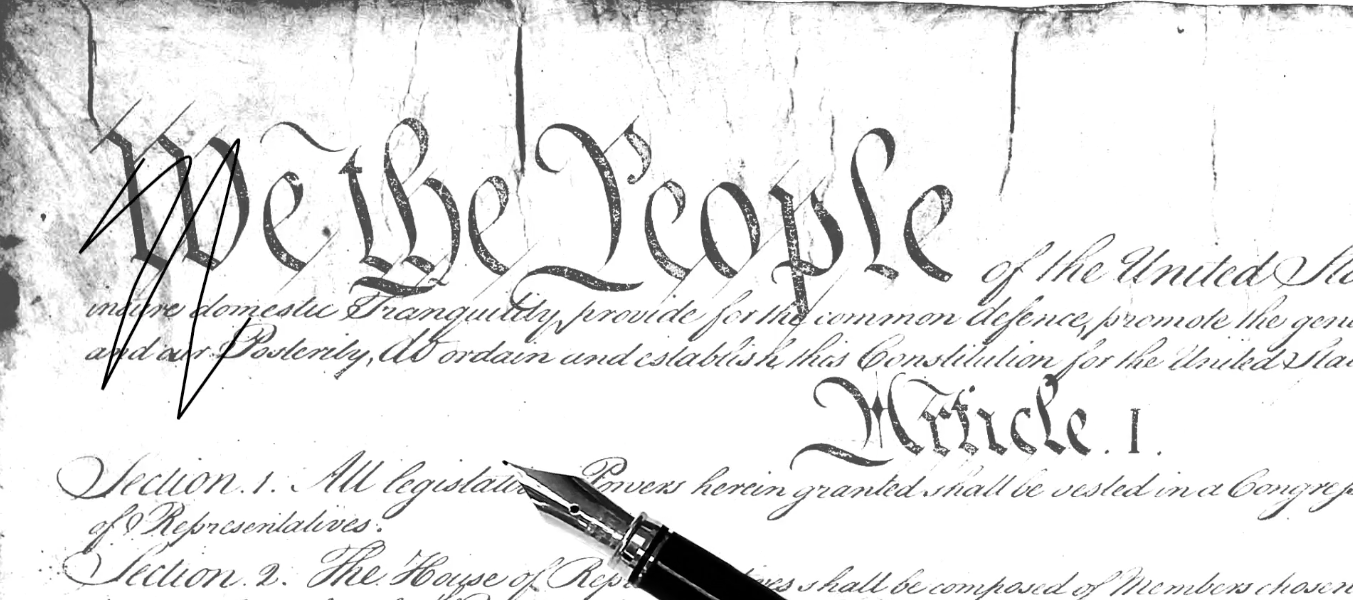 We the People of the United Sta
insure domestic Tranquility, provide for the common defence, promote the gene
and our Posterity, do ordain and establish this Constitution for the United Stat
Article. I.
Section. 1. All legislative Powers herein granted shall be vested in a Congres
of Representatives.
Section. 2. The House of Rep shall be composed of Members chosen